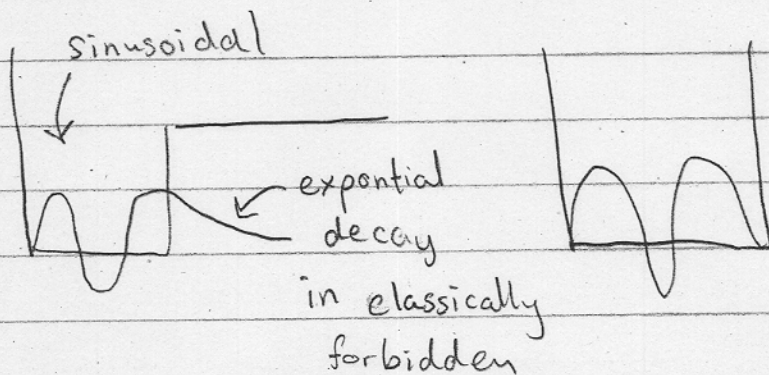 sinusoidal
expontial
decay
in classically
forbidden